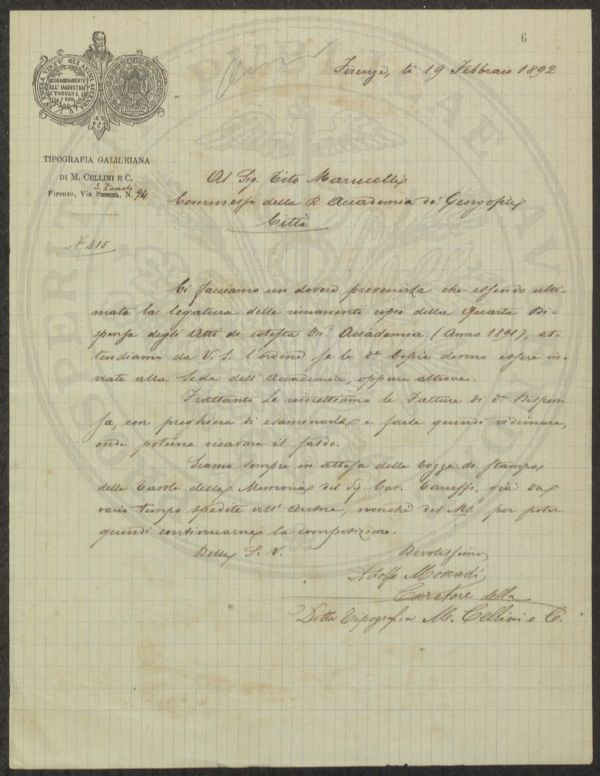 6
Firenze, li 19 Febbraio 1892
INCORAGGIAMENTO
ALL' INDUSTRIA
TOSCANA
TIPOGRAFIA GALILEIANA
DI M. CELLINI E C.
Firenze, Via S. Zanobi N. 94
Al Sig. Tito Marucelli
Commesso della R. Accademia de' Georgofili
Città
N. 415
Ci facciamo un dovere prevenirla che essendo ulti-
mata la legatura delle rimanenti copie della Quarta Di-
spensa degli Atti di cotesta On. Accademia (Anno 1891), at-
tendiamo da V. S. l'ordine se le de Copie devono essere in-
viate alla Sede dell' Accademia, oppure altrove.
Frattanto Le rimettiamo le Fatture di da Dispen-
sa, con preghiera di esaminarle e farle quindi vidimare,
onde poterne ricavare il saldo.
Siamo sempre in attesa delle bozze di stampa
delle Tavole della Memoria del Sig. Cav. Caruso, già da
vario tempo spedite all' Autore, nonché del Ms. per poter
quindi continuarne la composizione.
Della S. V.
Devotissimo
Adolfo
Curatore della
Ditta Tipografia M. Cellini e C.